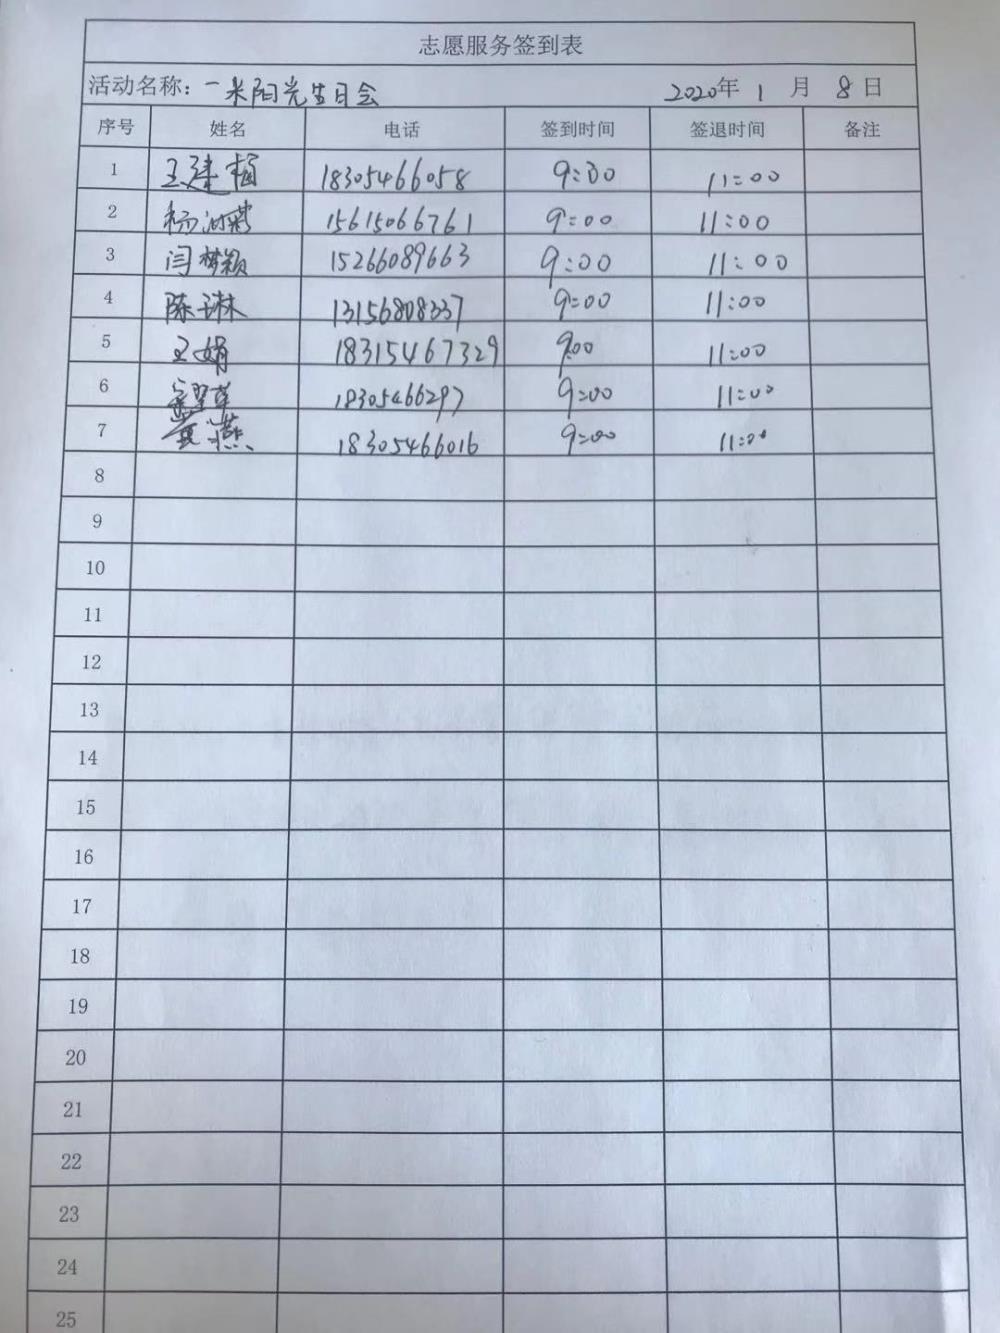 志愿服务签到表
活动名称：一米阳光生日会 2020年 1 月 8 日
序号 姓名 电话 签到时间 签退时间 备注
1 王建梅 18305466058 9:00 11:00
2 杨 15615066761 9:00 11:00
3 闫梦颖 15266089663 9:00 11:00
4 陈琳 13156808337 9:00 11:00
5 王娟 18315467329 9:00 11:00
6 18305466297 9:00 11:00
7 燕 18305466016 9:00 11:00
8
9
10
11
12
13
14
15
16
17
18
19
20
21
22
23
24
25